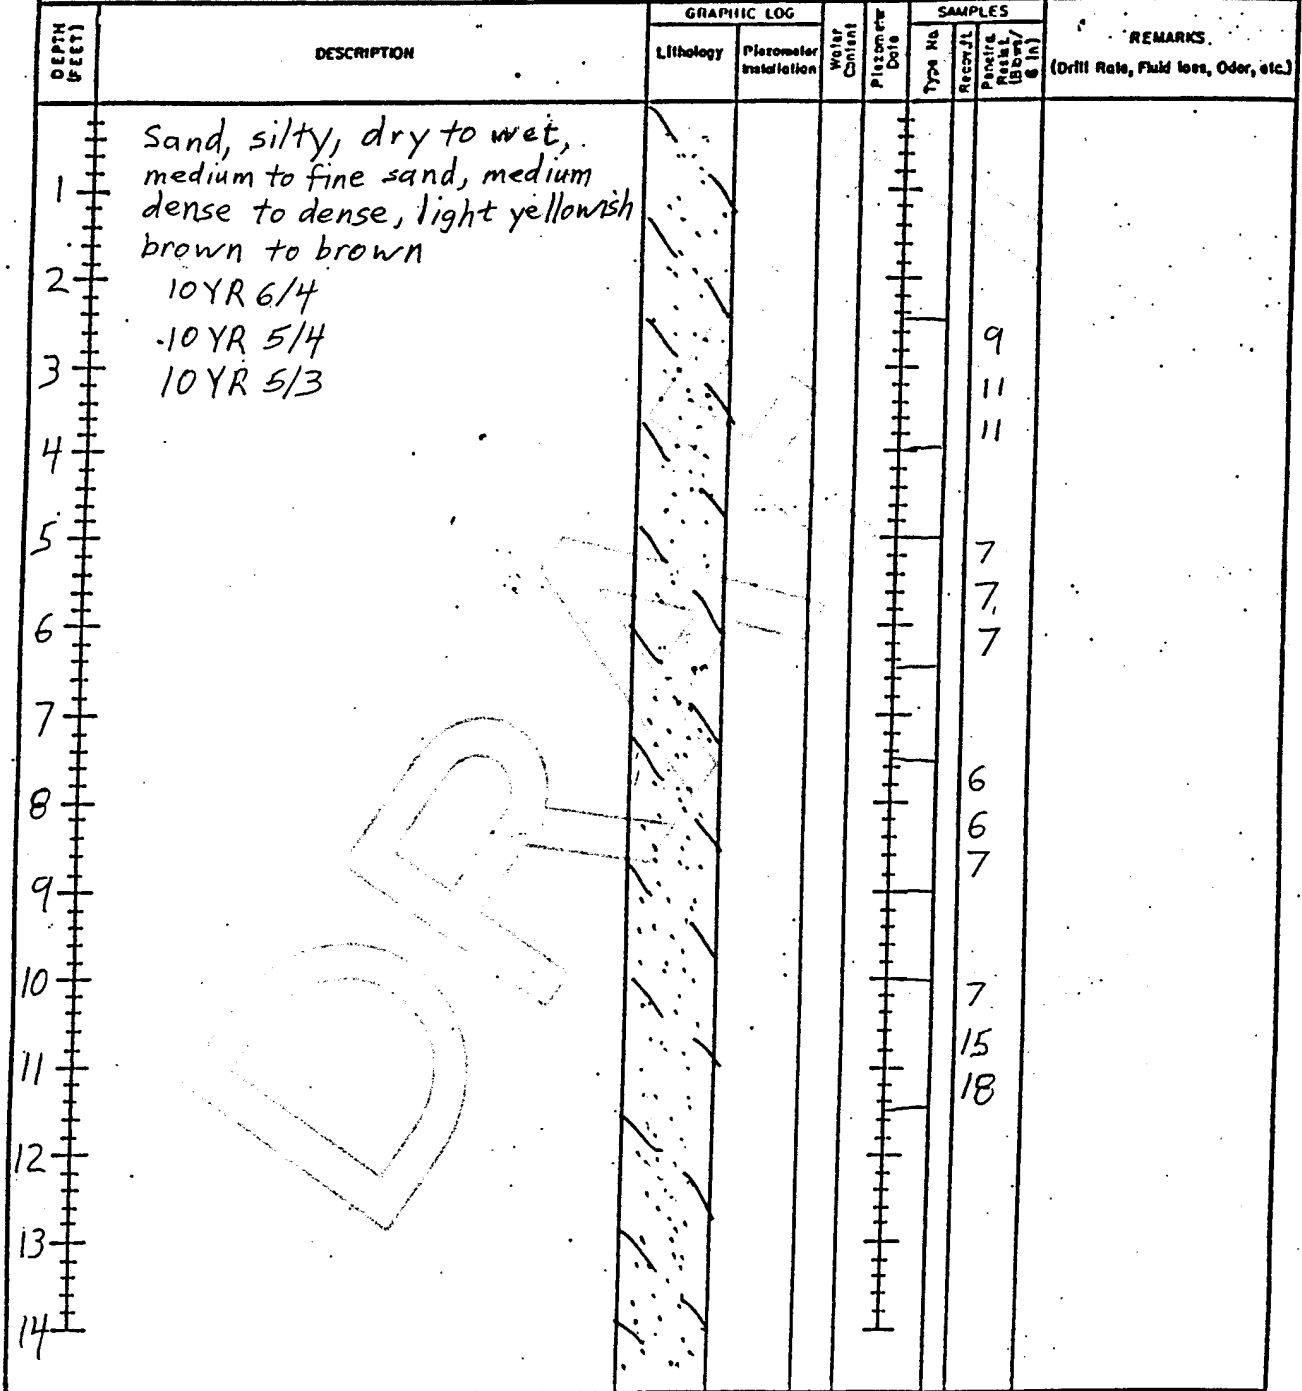 DEPTH (FEET)
DESCRIPTION
GRAPHIC LOG
Lithology
Piezometer Installation
Water Content
Piezometer Date
SAMPLES
Type No.
Recov. ft.
Penetra. Resist. (Blows/ 6 in)
REMARKS.
(Drill Rate, Fluid loss, Odor, etc.)
Sand, silty, dry to wet,
medium to fine sand, medium
dense to dense, light yellowish
brown to brown
10 YR 6/4
10 YR 5/4
10 YR 5/3
1
2
3
4
5
6
7
8
9
10
11
12
13
14
9
11
11
7
7
7
6
6
7
7
15
18
DRAFT